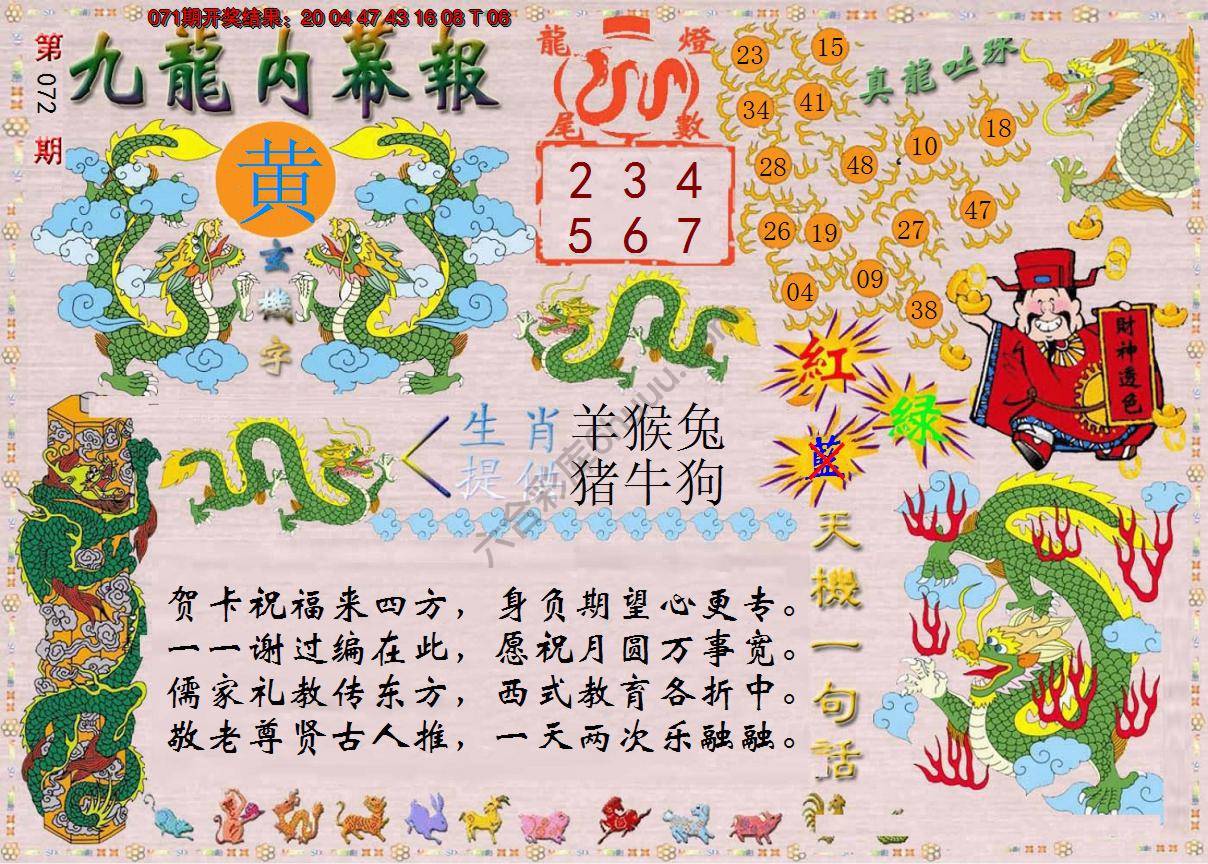 071期开奖结果：20 04 47 43 16 08 T 06
第072期
九龍内幕報
黄
玄機字
龍燈尾數
2 3 4
5 6 7
真龍吐珠
23 15
34 41
28 48 10 18
26 19 27 47
04 09 38
財神透色
紅
綠
藍
生肖提供
羊猴兔
猪牛狗
六合彩库
贺卡祝福来四方，身负期望心更专。
一一谢过编在此，愿祝月圆万事宽。
儒家礼教传东方，西式教育各折中。
敬老尊贤古人推，一天两次乐融融。
天機一句話